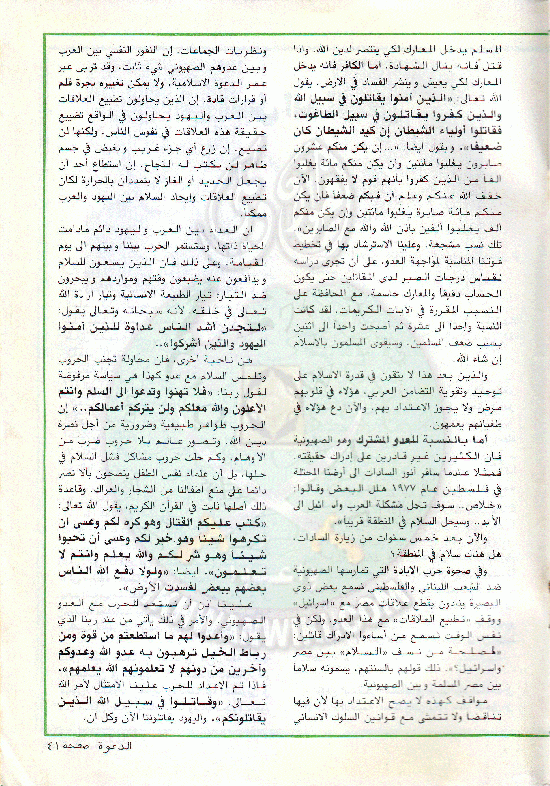 المسلم يدخل المعارك لكي ينتصر لدين الله، وإذا
قتل فإنه ينال الشهادة، أما الكافر فإنه يدخل
المعارك لكي يعيش وينشر الفساد في الأرض. يقول
الله تعالى: «الذين آمنوا يقاتلون في سبيل الله
والذين كفروا يقاتلون في سبيل الطاغوت،
فقاتلوا أولياء الشيطان إن كيد الشيطان كان
ضعيفا». ويقول أيضا: «...إن يكن منكم عشرون
صابرون يغلبوا مائتين وإن يكن منكم مائة يغلبوا
ألفا من الذين كفروا بأنهم قوم لا يفقهون. الآن
خفف الله عنكم وعلم أن فيكم ضعفا فإن يكن
منكم مائة صابرة يغلبوا مائتين وإن يكن منكم
ألف يغلبوا ألفين بإذن الله والله مع الصابرين».
تلك نسب مشجعة، وعلينا الاسترشاد بها في تخطيط
قوتنا المناسبة لمواجهة العدو، على أن تجرى دراسة
لقياس درجات الصبر لدى المقاتلين حتى يكون
الحساب دقيقا والمعارك حاسمة، مع المحافظة على
النسب المقررة في الآيات الكريمات. لقد كانت
النسبة واحدا الى عشرة ثم أصبحت واحدا الى اثنين
بسبب ضعف المسلمين، وسيقوى المسلمون بالاسلام
إن شاء الله.
والذين بعد هذا لا يثقون في قدرة الاسلام على
توحيد وتقوية التضامن العربي، هؤلاء في قلوبهم
مرض ولا يجوز الاعتداد بهم، والآن دع هؤلاء في
طغيانهم يعمهون.
أما بالنسبة للعدو المشترك وهو الصهيونية
فإن الكثيرين غير قادرين على إدراك حقيقته.
فمثلا عندما سافر أنور السادات الى أرضنا المحتلة
في فلسطين عام ١٩٧٧ هلل البعض وقالوا:
«خلاص.. سوف تحل مشكلة العرب واسرائيل الى
الأبد.. وسيحل السلام في المنطقة قريبا».
والآن بعد خمس سنوات من زيارة السادات،
هل هناك سلام في المنطقة؟
وفي ضجة حرب الابادة التي تمارسها الصهيونية
ضد الشعب اللبناني والفلسطيني نسمع بعض ذوي
البصيرة ينادون بقطع علاقات مصر مع «اسرائيل»
ووقف «تطبيع العلاقات» مع هذا العدو، ولكن في
نفس الوقت نسمع من أساءوا الادراك قائلين:
«فلمصلحة من نسف «السلام» بين مصر
واسرائيل؟». ذلك قولهم بألسنتهم، يسمونه سلاما
بين مصر المسلمة وبين الصهيونية.
مواقف كهذه لا يصح الاعتداد بها لأن فيها
تناقضا ولا تتمشى مع قوانين السلوك الانساني
ونظريات الجماعات. إن النفور النفسي بين العرب
وبين عدوهم الصهيوني شيء ثابت، وقد تربى عبر
عمر الدعوة الاسلامية، ولا يمكن تغييره بجرة قلم
أو قرارات قادة. إن الذين يحاولون تطبيع العلاقات
بين العرب واليهود يحاولون في الواقع تضييع
حقيقة هذه العلاقات في نفوس الناس، ولكنها لن
تضيع. إن زرع أي جزء غريب وبغيض في جسم
طاهر لن يكتب له النجاح. إن استطاع أحد أن
يجعل الحديد أو الغاز لا يتمددان بالحرارة لكان
تطبيع العلاقات وإيجاد السلام بين اليهود والعرب
ممكنا.
ان العداء بين العرب واليهود دائم مادامت
الحياة ذاتها، وستستمر الحرب بيننا وبينهم الى يوم
القيامة. وعلى ذلك فإن الذين يسعون للسلام
ويدافعون عنه يضيعون وقتهم ومواردهم ويبحرون
ضد التيار: تيار الطبيعة الانسانية وتيار إرادة الله
تعالى في خلقه، لأنه سبحانه وتعالى يقول:
«لتجدن أشد الناس عداوة للذين آمنوا
اليهود والذين أشركوا».
من ناحية أخرى، فإن محاولة تجنب الحروب
وتلمس السلام مع عدو كهذا هي سياسة مرفوضة
لقول ربنا: «فلا تهنوا وتدعوا الى السلم وأنتم
الأعلون والله معكم ولن يتركم أعمالكم..» إن
الحروب ظواهر طبيعية وضرورية من أجل نصرة
دين الله، وتصور عالم بلا حروب ضرب من
الأوهام، وكم حلت حروب مشاكل فشل السلام في
حلها، بل أن علماء نفس الطفل ينصحون بألا نصر
دائما على منع أطفالنا من الشجار والعراك. وقاعدة
ذلك أصلها ثابت في القرآن الكريم، يقول الله تعالى:
«كتب عليكم القتال وهو كره لكم وعسى أن
تكرهوا شيئا وهو خير لكم وعسى أن تحبوا
شيئا وهو شر لكم والله يعلم وأنتم لا
تعلمون». أيضا: «ولولا دفع الله الناس
بعضهم ببعض لفسدت الأرض».
علينا إذن أن نستعد للحرب مع العدو
الصهيوني، والأمر في ذلك يأتي من عند ربنا الذي
يقول: «وأعدوا لهم ما استطعتم من قوة ومن
رباط الخيل ترهبون به عدو الله وعدوكم
وآخرين من دونهم لا تعلمونهم الله يعلمهم»،
فإذا تم الاعداد للحرب علينا الامتثال لأمر الله
تعالى: «وقاتلوا في سبيل الله الذين
يقاتلونكم»، واليهود يقاتلوننا الآن وكل آن.
الدعوة صفحة ٤١